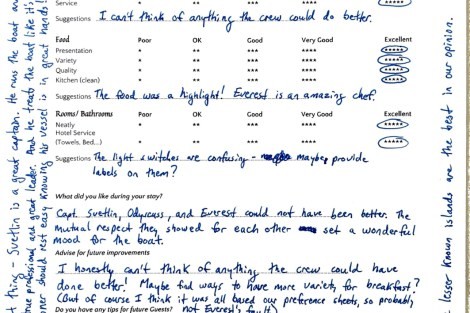 Service * ** *** **** *****
Suggestions I can't think of anything the crew could do better.
Food Poor OK Good Very Good Excellent
Presentation * ** *** **** *****
Variety * ** *** **** *****
Quality * ** *** **** *****
Kitchen (clean) * ** *** **** *****
Suggestions The food was a highlight! Everest is an amazing chef.
Rooms/ Bathrooms Poor OK Good Very Good Excellent
Neatly * ** *** **** *****
Hotel Service
(Towels, Bed...) * ** *** **** *****
Suggestions The light switches are confusing - maybe provide
labels on them?
What did you like during your stay?
Capt. Svetlin, Odysseus, and Everest could not have been better. The
mutual respect they showed for each other set a wonderful
mood for the boat.
Advise for future improvements
I honestly can't think of anything the crew could have
done better! Maybe find ways to have more variety for breakfast?
(But of course I think it was all based our preference sheets, so probably
not Everest's fault)
Do you have any tips for future Guests?
t thing - Svetlin is a great captain. He runs the boat
true professional and great leader. And he treats the boat like it's
owner should rest easy knowing his vessel is in great hands!
lesser known islands are the best in our opinion.